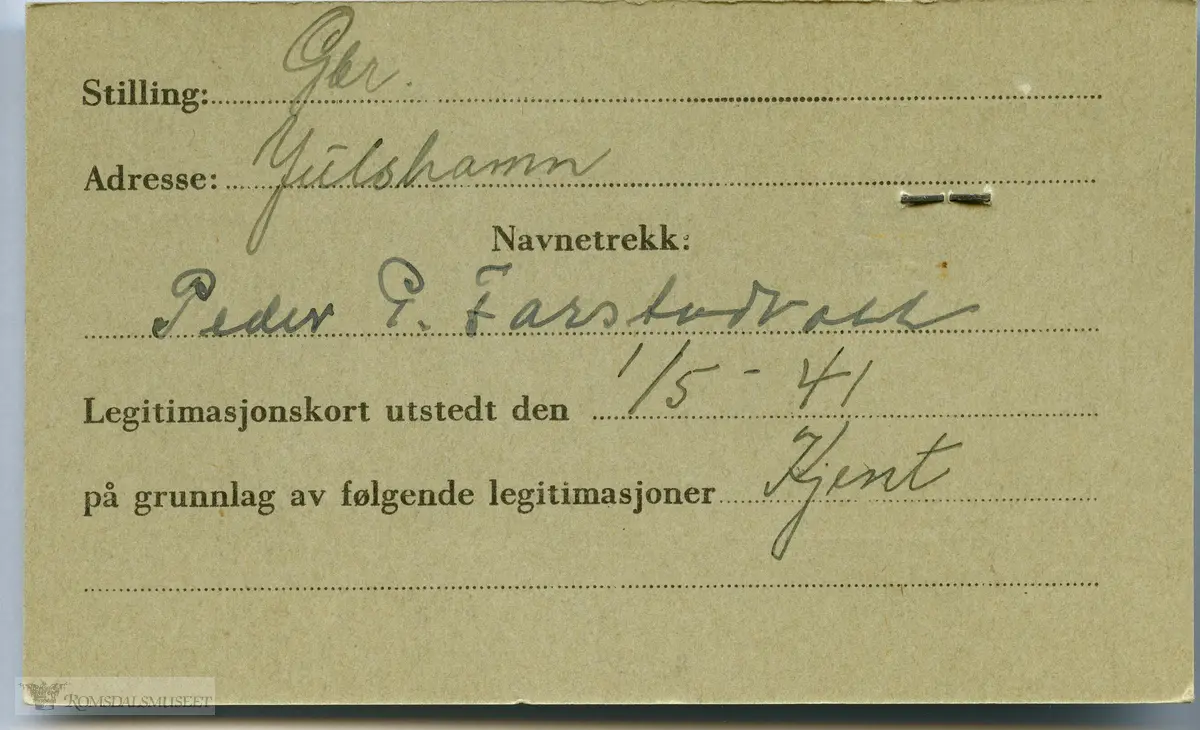 Stilling: Gbr.
Adresse: Julshamn
Navnetrekk:
Peder P. Farstadvoll
Legitimasjonskort utstedt den 1/5 - 41
på grunnlag av følgende legitimasjoner Kjent
ROMSDALSMUSEET